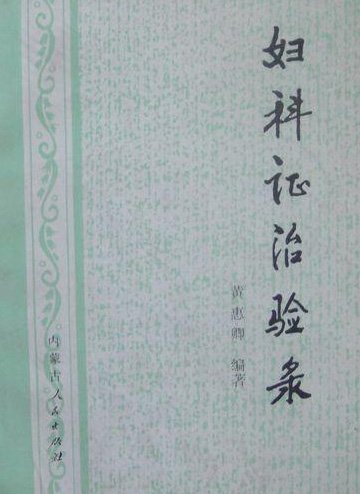 妇科证治验录
黄惠卿 编著
内蒙古人民出版社